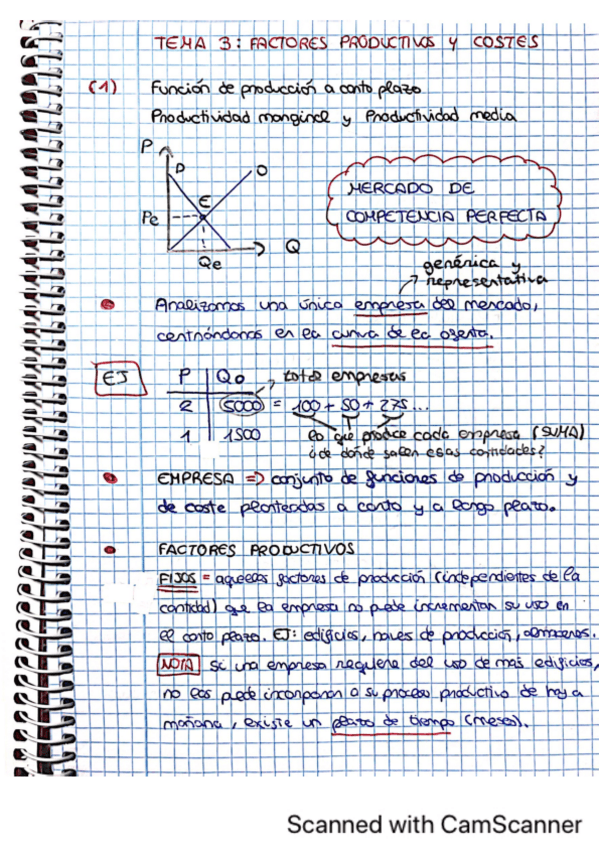 TEMA 3: FACTORES PRODUCTIVOS Y COSTES
(1) Función de producción a corto plazo
Productividad marginal y Productividad media
P
D
O
E
Pe
Qe
Q
MERCADO DE
COMPETENCIA PERFECTA
genérica y
representativa
Analizamos una única empresa del mercado,
centrándonos en la curva de la oferta.
EJ
P | Qo → total empresas
2 | 5000 = 100 + 50 + 275 ...
1 | 1500
lo que produce cada empresa (SUMA)
¿de dónde salen esas cantidades?
EMPRESA => conjunto de funciones de producción y
de coste planteadas a corto y a largo plazo.
FACTORES PRODUCTIVOS
FIJOS = aquellos factores de producción (independientes de la
cantidad) que la empresa no puede incrementar su uso en
el corto plazo. EJ: edificios, naves de producción, almacenes.
NOTA si una empresa requiere del uso de más edificios,
no los puede incorporar a su proceso productivo de hoy a
mañana, existe un plazo de tiempo (meses).
Scanned with CamScanner